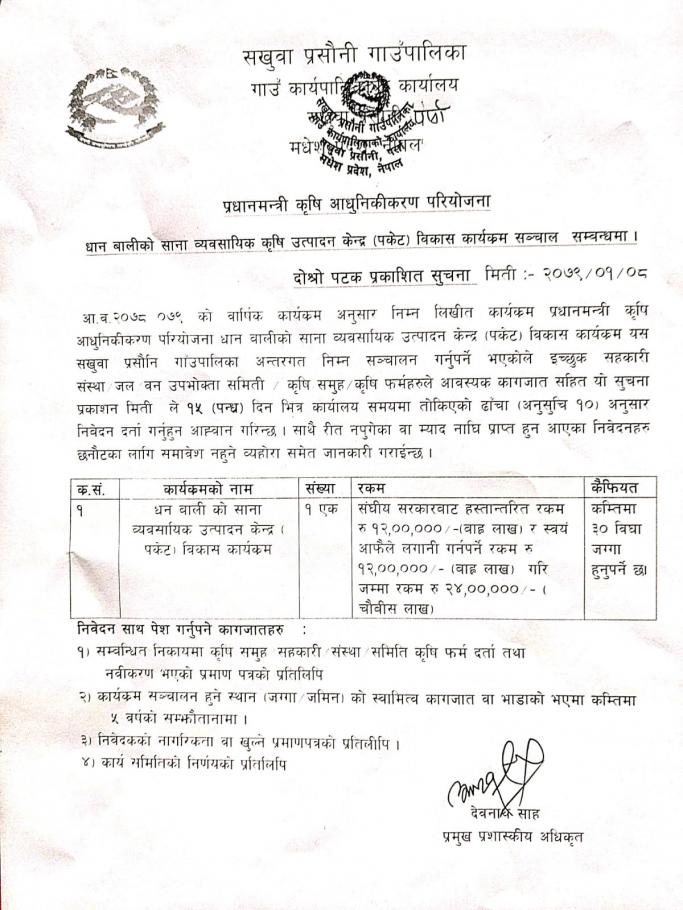 सखुवा प्रसौनी गाउँपालिका
गाउँ कार्यपालिका कार्यालय
पर्सा
मधेश नेपाल
सखुवा प्रसौनी गाउँपालिका
गाउँ कार्यपालिकाको कार्यालय
सखुवा प्रसौनी, पर्सा
मधेश प्रदेश, नेपाल
प्रधानमन्त्री कृषि आधुनिकीकरण परियोजना
धान बालीको साना व्यवसायिक कृषि उत्पादन केन्द्र (पकेट) विकास कार्यक्रम सञ्चाल सम्वन्धमा ।
दोश्रो पटक प्रकाशित सुचना मिती :- २०७९/०१/०८
आ.व.२०७८ ०७९ को वार्षिक कार्यक्रम अनुसार निम्न लिखीत कार्यक्रम प्रधानमन्त्री कृषि
आधुनिकीकरण परियोजना धान वालीको साना व्यवसायिक उत्पादन केन्द्र (पकेट) विकास कार्यक्रम यस
सखुवा प्रसौनि गाउपालिका अन्तरगत निम्न सञ्चालन गर्नुपर्ने भएकोले इच्छुक सहकारी
संस्था/जल वन उपभोक्ता समिती / कृषि समुह/कृषि फर्महरुले आवस्यक कागजात सहित यो सुचना
प्रकाशन मिती ले १५ (पन्ध्र) दिन भित्र कार्यालय समयमा तोकिएको ढाँचा (अनुसुचि १०) अनुसार
निवेदन दर्ता गर्नुहुन आह्वान गरिन्छ । साथै रीत नपुगेका वा म्याद नाघि प्राप्त हुन आएका निवेदनहरु
छनौटका लागि समावेश नहुने व्यहोरा समेत जानकारी गराईन्छ ।
क.सं. कार्यक्रमको नाम संख्या रकम कैफियत
१ धन वाली को साना १ एक संघीय सरकारवाट हस्तान्तरित रकम कम्तिमा
व्यवसायिक उत्पादन केन्द्र ( रु १२,००,०००/-(वाह्र लाख) र स्वयं ३० विघा
पकेट) विकास कार्यक्रम आफैले लगानी गर्नपर्ने रकम रु जग्गा
१२,००,०००/- (वाह्र लाख) गरि हुनुपर्ने छ।
जम्मा रकम रु २४,००,०००/- (
चौवीस लाख)
निवेदन साथ पेश गर्नुपर्ने कागजातहरु :
१) सम्वन्धित निकायमा कृषि समुह/सहकारी/संस्था/समिति कृषि फर्म दर्ता तथा
नवीकरण भएको प्रमाण पत्रको प्रतिलिपि
२) कार्यक्रम सञ्चालन हुने स्थान (जग्गा/जमिन) को स्वामित्व कागजात वा भाडाको भएमा कम्तिमा
५ वर्षको सम्झौतानामा ।
३) निवेदकको नागरिकता वा खुल्ने प्रमाणपत्रको प्रतिलीपि ।
४) कार्य समितिको निर्णयको प्रतिलिपि
देवनाथ साह
प्रमुख प्रशास्कीय अधिकृत